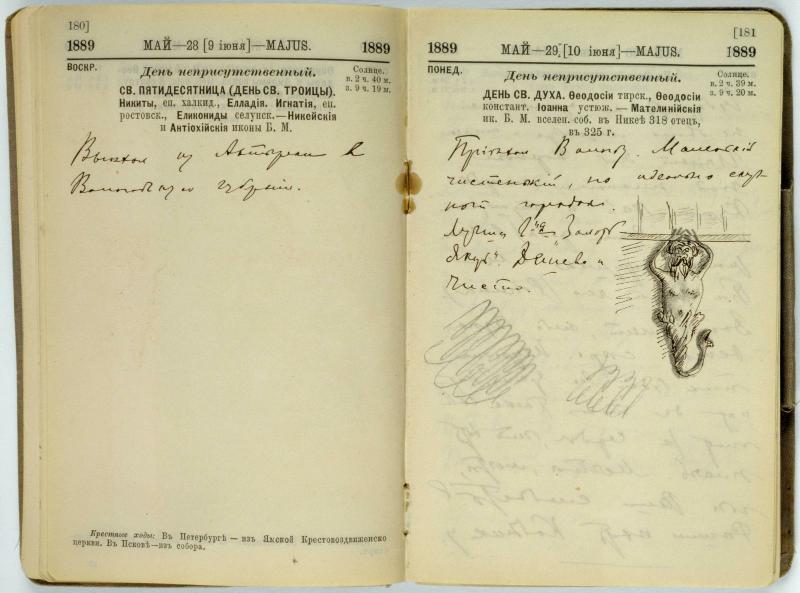 180]
1889 МАЙ—28 [9 іюня]—MAJUS. 1889
ВОСКР.
День неприсутственный.
Солнце.
в. 2 ч. 40 м.
з. 9 ч. 19 м.
СВ. ПЯТИДЕСЯТНИЦА (ДЕНЬ СВ. ТРОИЦЫ).
Никиты, еп. халкид., Елладія. Игнатія, еп.
ростовск., Еликониды селунск.—Никейскія
и Антіохійскія иконы Б. М.
Выехал из в
Вологодскую губернію.
Крестные ходы: Въ Петербургѣ — изъ Ямской Крестовоздвиженской
церкви. Въ Псковѣ—изъ собора.
[181
1889 МАЙ—29 [10 іюня]—MAJUS. 1889
ПОНЕД.
День неприсутственный.
Солнце.
в. 2 ч. 39 м.
з. 9 ч. 20 м.
ДЕНЬ СВ. ДУХА. Ѳеодосіи тирск., Ѳеодосіи
констант. Іоанна устюж. — Мателинійскія
ик. Б. М. вселен. соб. въ Никеѣ 318 отец.,
въ 325 г.
Пріѣхал Маленькій
чистенькій, но идеально скуч
ный городок.
"Золот
Якрь" Дешево и
чисто.